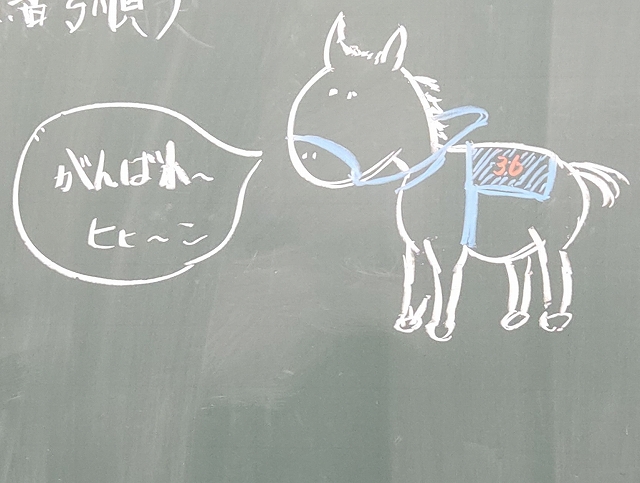 番号順)
がんばれ～
ヒヒ～ン
36